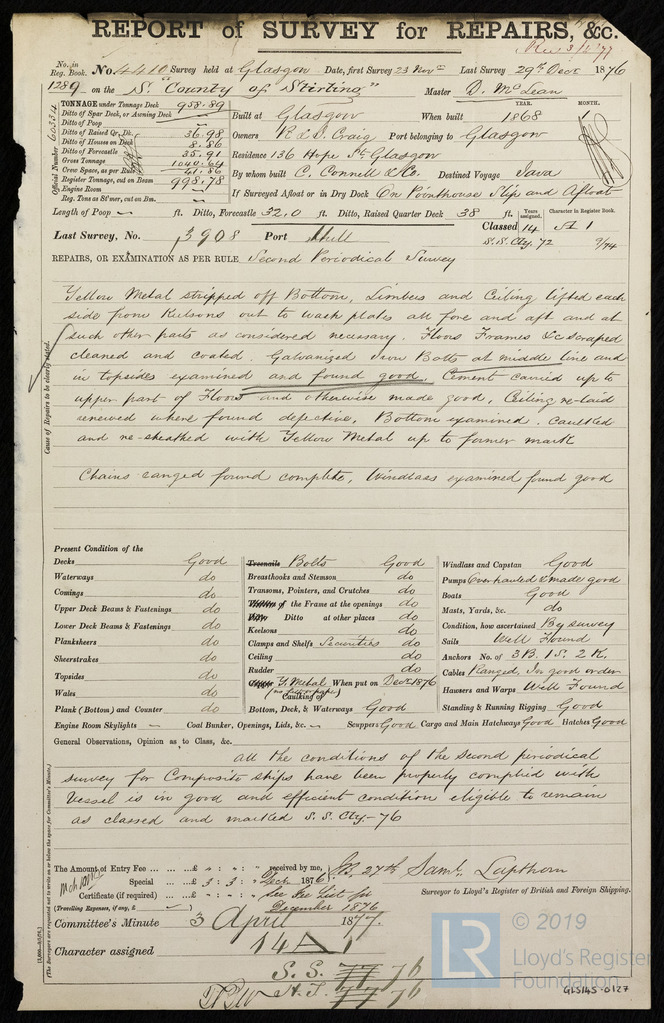 REPORT of SURVEY for REPAIRS, &c.
No. in Reg. Book. No. 4410 Survey held at Glasgow Date, first Survey 23 Novr Last Survey 29th Decr 1876
1289 on the S. "County of Stirling" Master D. McLean
TONNAGE under Tonnage Deck 958.89
Ditto of Spar Deck, or Awning Deck
Ditto of Poop
Ditto of Raised Qr. Dk. 36.98
Ditto of Houses on Deck 8.86
Ditto of Forecastle 35.91
Gross Tonnage 1040.64
Crew Space, as per Rule 41.86
Register Tonnage, cut on Beam 998.78
Engine Room
Reg. Tons as St'mer, cut on Bm.
Official Number
Built at Glasgow When built YEAR. 1868 MONTH.
Owners R & J. Craig Port belonging to Glasgow
Residence 136 Hope St. Glasgow
By whom built C. Connell & Co. Destined Voyage Java
If Surveyed Afloat or in Dry Dock On Pointhouse Slip and Afloat
Length of Poop — ft. Ditto, Forecastle 32.0 ft. Ditto, Raised Quarter Deck 38 ft.
Years assigned. Character in Register Book.
Classed 14 A 1
S.S. Cty. 72 9/74
Last Survey, No. 3908 Port Hull
REPAIRS, OR EXAMINATION AS PER RULE Second Periodical Survey
Cause of Repairs to be clearly stated.
Yellow Metal stripped off Bottom, Limbers and Ceiling lifted each
side from Kelsons out to wash plates all fore and aft and at
such other parts as considered necessary. Floors Frames &c scraped
cleaned and coated. Galvanized Iron Bolts at middle line and
in topsides examined and found good. Cement carried up to
upper part of Floors and otherwise made good, Ceiling re-laid
renewed where found defective, Bottom examined. Caulked
and re-sheathed with Yellow Metal up to former mark
Chains ranged found complete, Windlass examined found good
Present Condition of the
Decks Good
Waterways do
Comings do
Upper Deck Beams & Fastenings do
Lower Deck Beams & Fastenings do
Planksheers do
Sheerstrakes do
Topsides do
Wales do
Plank (Bottom) and Counter do
Engine Room Skylights — Coal Bunker, Openings, Lids, &c. — Scuppers Good Cargo and Main Hatchways Good Hatches Good
Treenails Bolts Good
Breasthooks and Stemson do
Transoms, Pointers, and Crutches do
of the Frame at the openings do
Ditto at other places do
Keelsons do
Clamps and Shelfs Securities do
Ceiling do
Rudder do
Y. Metal When put on Decr 1876
Caulking of
Bottom, Deck, & Waterways Good
Windlass and Capstan Good
Pumps Overhauled & made good
Boats Good
Masts, Yards, &c. do
Condition, how ascertained By survey
Sails Well Found
Anchors No. of 3 B. 1 S. 2 K.
Cables Ranged, In good order
Hawsers and Warps Well Found
Standing & Running Rigging Good
General Observations, Opinion as to Class, &c.
All the conditions of the second periodical
survey for Composite ships have been properly complied with
Vessel is in good and efficient condition eligible to remain
as classed and marked S.S. Cty-76
(The Surveyors are requested not to write on or below the space for Committee's Minute.)
The Amount of Entry Fee ... ... £ : : received by me,
Special ... ... £ 3 : 3 : Decr 1876
Certificate (if required) ... £ : : See Fee List for
(Travelling Expenses, if any, £ ) December 1876
27th Saml. Lapthorn
Surveyor to Lloyd's Register of British and Foreign Shipping.
Committee's Minute 3 April 1877.
Character assigned 14 A 1
S.S. 77 76
H.T. 77 76
© 2019
LR
Lloyd's Register
Foundation
GLS145-0127